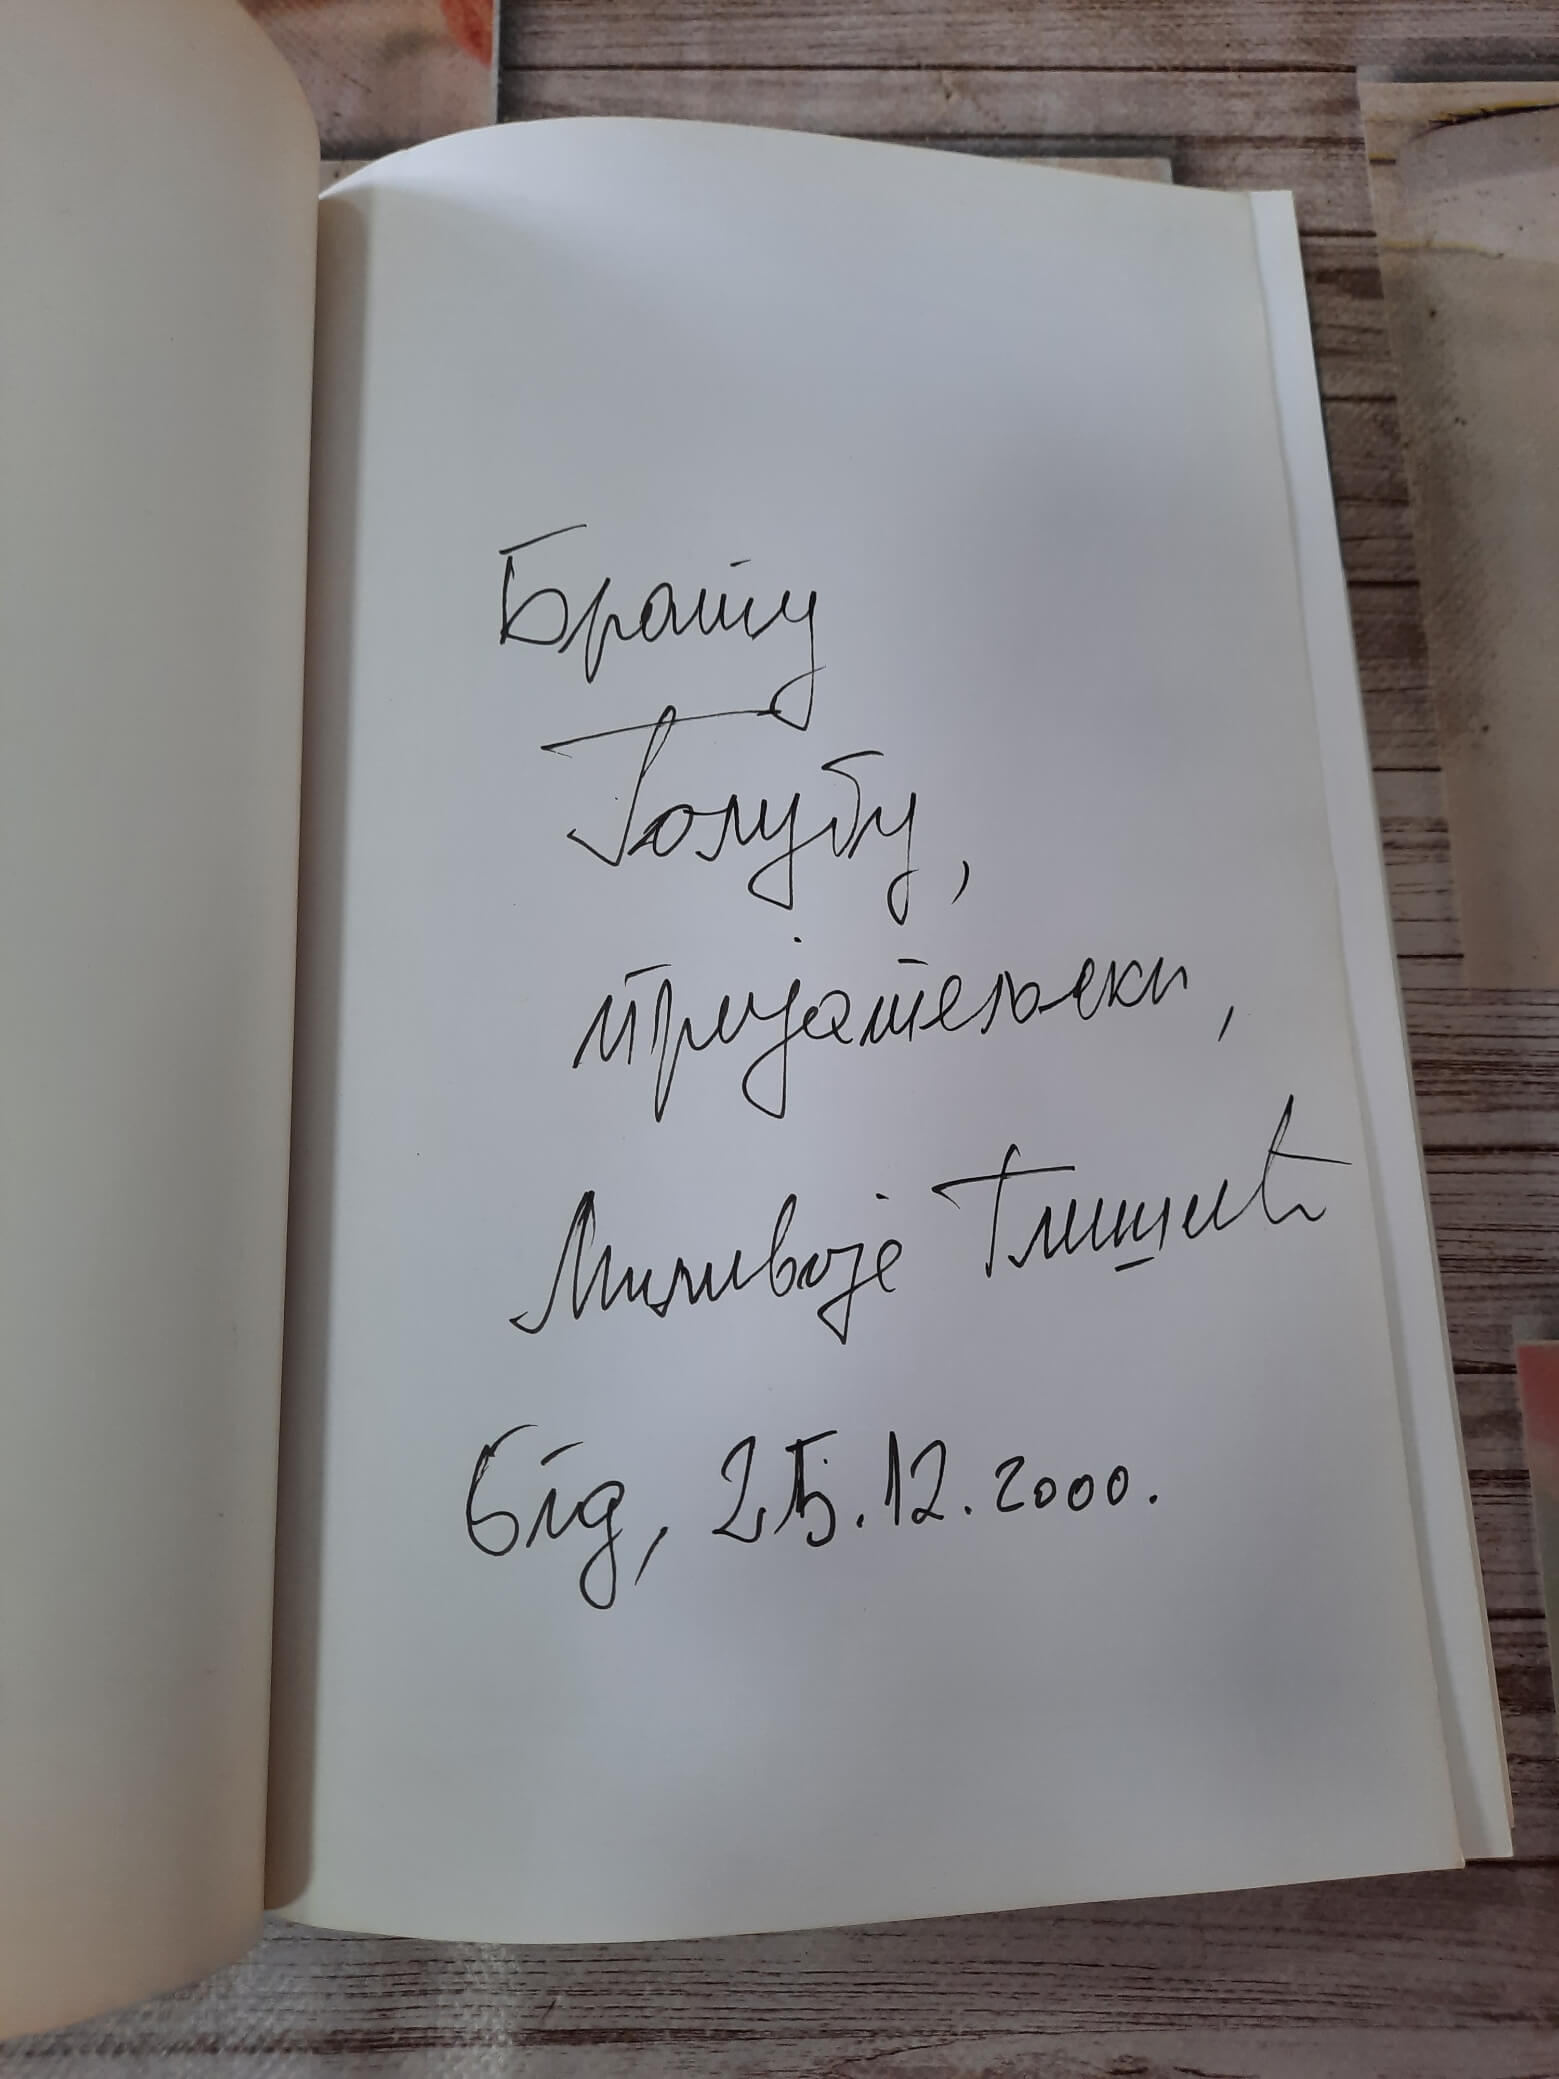 Брату
Голубу,
пријатељски,
Миливоје Глишић
Бгд, 25.12.2000.